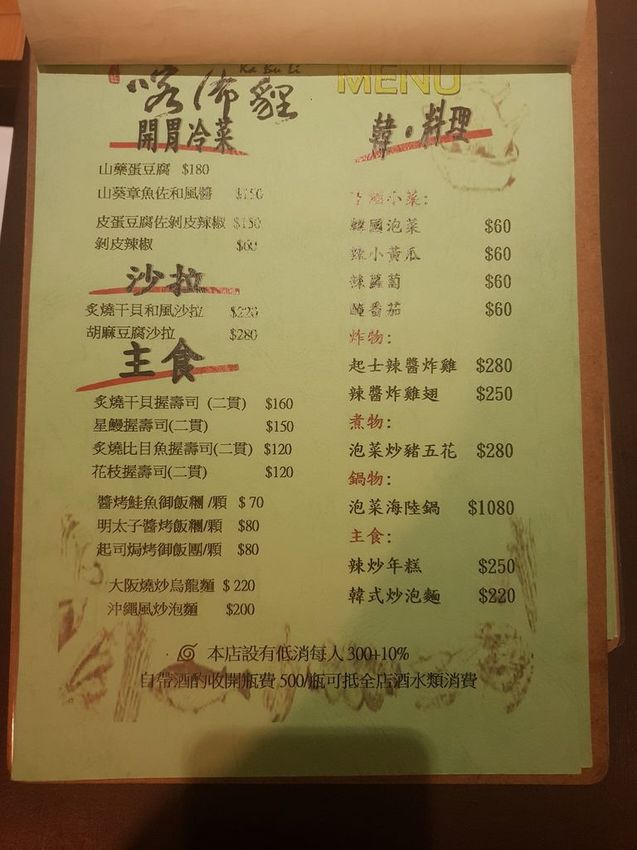 Ka Bu Li
喀佈貍
MENU
開胃冷菜
山藥蛋豆腐 $180
山葵章魚佐和風醬 $150
皮蛋豆腐佐剝皮辣椒 $150
剝皮辣椒 $60
沙拉
炙燒干貝和風沙拉 $220
胡麻豆腐沙拉 $280
主食
炙燒干貝握壽司 (二貫) $160
星鰻握壽司(二貫) $150
炙燒比目魚握壽司(二貫) $120
花枝握壽司(二貫) $120
醬烤鮭魚御飯糰 /顆 $ 70
明太子醬烤飯糰/顆 $80
起司焗烤御飯團/顆 $80
大阪燒炒烏龍麵 $ 220
沖繩風炒泡麵 $200
韓・料理
小菜:
韓國泡菜 $60
辣小黃瓜 $60
辣蘿蔔 $60
醃番茄 $60
炸物:
起士辣醬炸雞 $280
辣醬炸雞翅 $250
煮物:
泡菜炒豬五花 $280
鍋物:
泡菜海陸鍋 $1080
主食:
辣炒年糕 $250
韓式炒泡麵 $220
本店設有低消每人 300+10%
自帶酒酌收開瓶費 500/瓶可抵全店酒水類消費